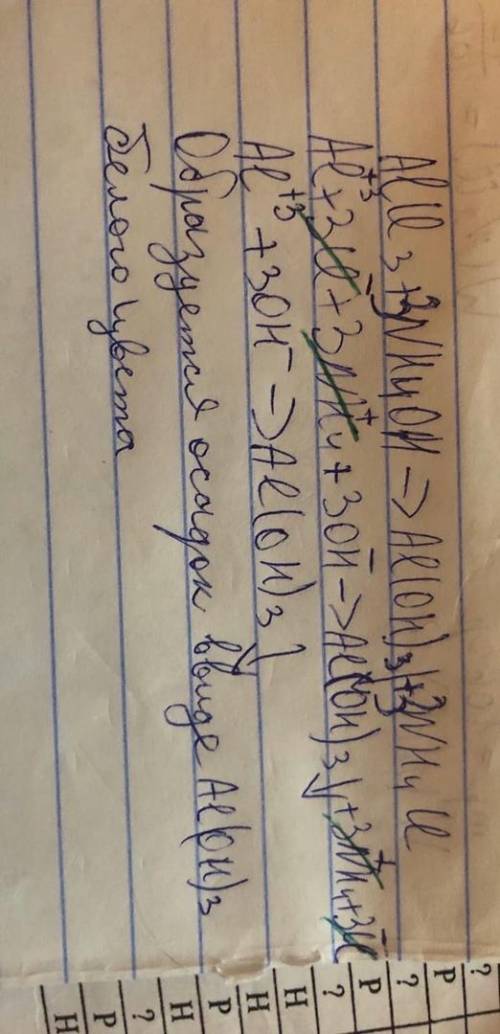 AlCl3 + 3NH4OH -> Al(OH)3↓ + 3NH4Cl
Al+3 + 3Cl- + 3NH4+ + 3OH- -> Al(OH)3↓ + 3NH4+ + 3Cl-
Al+3 + 3OH- -> Al(OH)3↓
Образуется осадок ввиде Al(OH)3
белого цвета
?
Р
?
Р
?
Н
Н
Р
Н
?
Р
Н